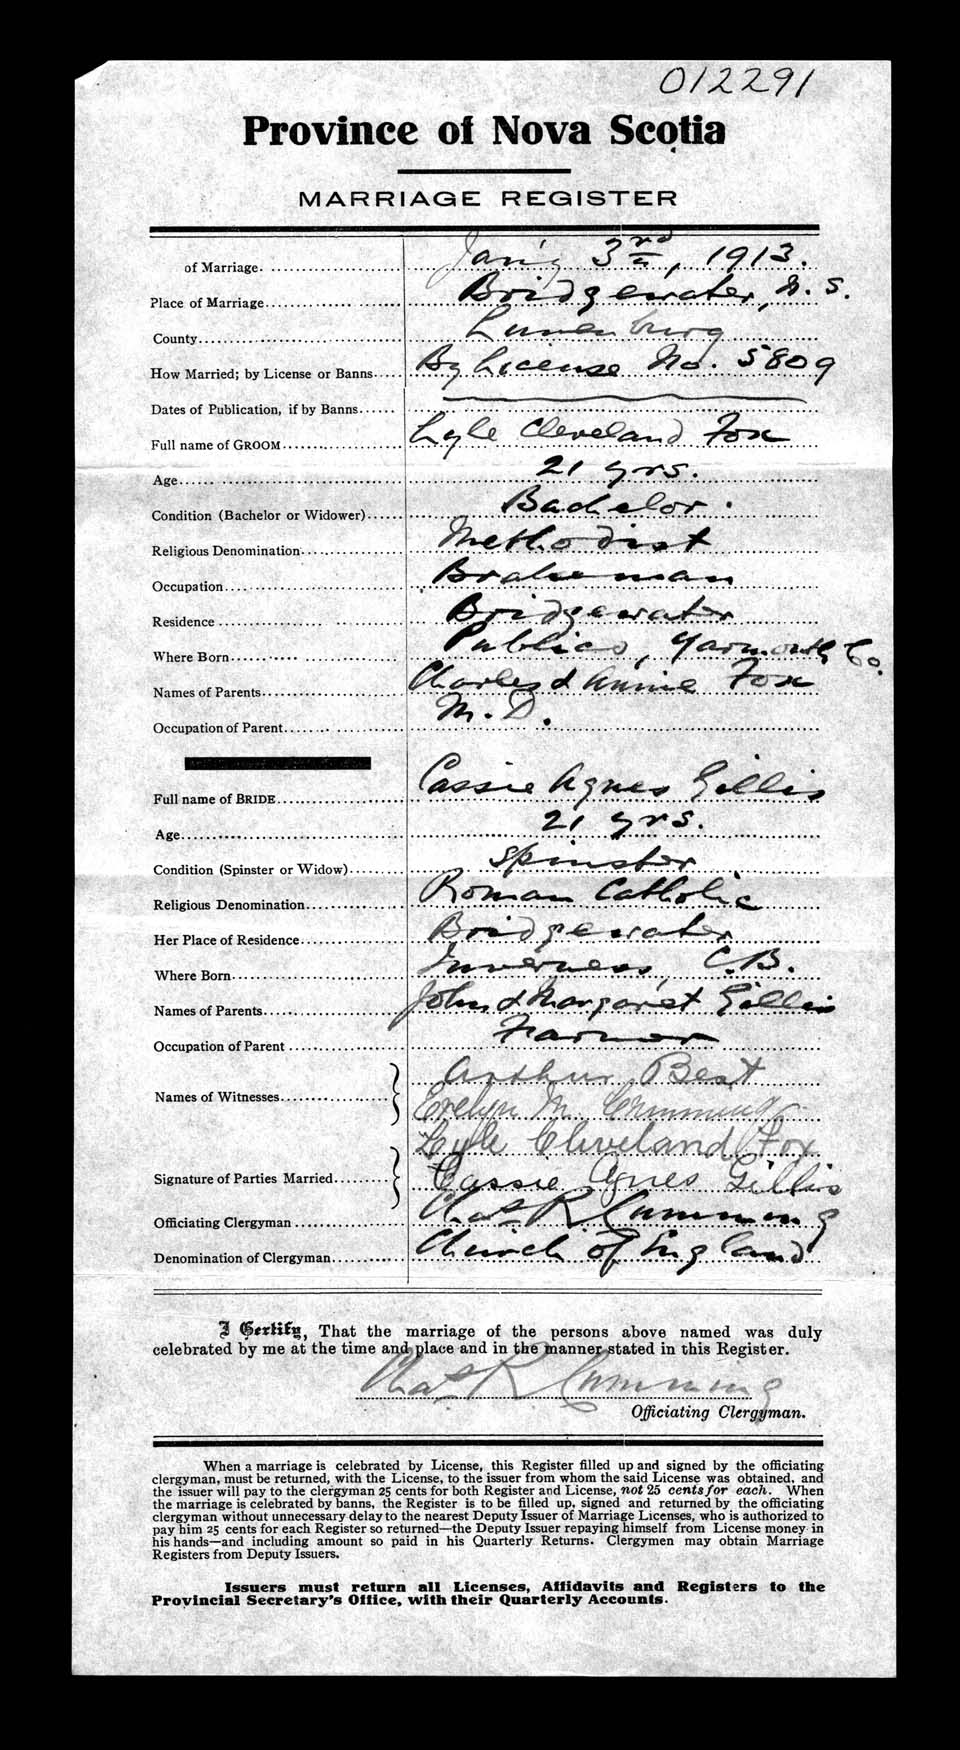 012291
Province of Nova Scotia
MARRIAGE REGISTER
of Marriage. Jan'y 3rd, 1913.
Place of Marriage Bridgewater, N. S.
County Lunenburg
How Married; by License or Banns By License No. 5809
Dates of Publication, if by Banns
Full name of GROOM Lyle Cleveland Fox
Age 21 yrs.
Condition (Bachelor or Widower) Bachelor.
Religious Denomination Methodist
Occupation Brakeman
Residence Bridgewater
Where Born Pubnico, Yarmouth Co.
Names of Parents Charles & Annie Fox
Occupation of Parent M. D.
Full name of BRIDE Cassie Agnes Gillis
Age 21 yrs.
Condition (Spinster or Widow) Spinster
Religious Denomination Roman Catholic
Her Place of Residence Bridgewater
Where Born Inverness, C.B.
Names of Parents John & Margaret Gillis
Occupation of Parent Farmer
Names of Witnesses Arthur Best
Evelyn M. Cumming
Lyle Cleveland Fox
Signature of Parties Married Cassie Agnes Gillis
Officiating Clergyman Chas R Cumming
Denomination of Clergyman Church of England
I Certify, That the marriage of the persons above named was duly
celebrated by me at the time and place and in the manner stated in this Register.
Chas R Cumming
Officiating Clergyman.
When a marriage is celebrated by License, this Register filled up and signed by the officiating
clergyman, must be returned, with the License, to the issuer from whom the said License was obtained, and
the issuer will pay to the clergyman 25 cents for both Register and License, not 25 cents for each. When
the marriage is celebrated by banns, the Register is to be filled up, signed and returned by the officiating
clergyman without unnecessary delay to the nearest Deputy Issuer of Marriage Licenses, who is authorized to
pay him 25 cents for each Register so returned—the Deputy Issuer repaying himself from License money in
his hands—and including amount so paid in his Quarterly Returns. Clergymen may obtain Marriage
Registers from Deputy Issuers.
Issuers must return all Licenses, Affidavits and Registers to the
Provincial Secretary's Office, with their Quarterly Accounts.